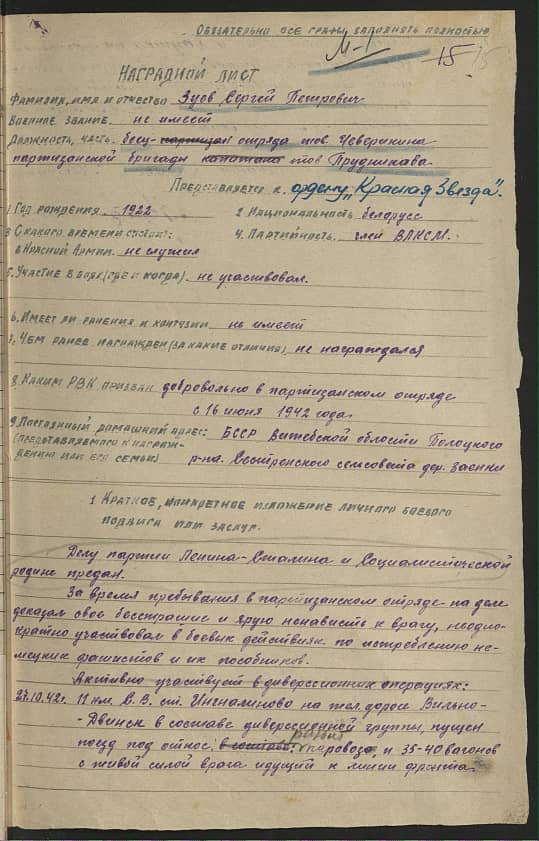 Обязательно все графы заполнять полностью
М-1
15
НАГРАДНОЙ ЛИСТ
Фамилия, имя и отчество Зуев Сергей Петрович
Военное звание не имеет
Должность, часть боец-партизан отряда тов.
партизанской бригады капитана тов Прудникава.
Представляется к ордену „Красная Звезда".
1. Год рождения 1922
2. Национальность белорусс
3. С какого времени состоит:
в Красной Армии не служил
4. Партийность член ВЛКСМ.
5. Участие в боях (где и когда) не участвовал.
6. Имеет ли ранения и контузии не имеет
7. Чем ранее награжден (за какие отличия) не награждался
8. Каким РВК призван добровольно в партизанском отряде
с 16 июня 1942 года.
9. Постоянный домашний адрес: БССР Витебской области Полоцкого
(представляемого к награж-
дению или его семьи) р-на. сельсовета дер.
1. Краткое, конкретное изложение личного боевого
подвига или заслуг.
Делу партии Ленина-Сталина и Социалистической
родине предан.
За время пребывания в партизанском отряде на деле
доказал свое бесстрашие и ярую ненависть к врагу, неодно-
кратно участвовал в боевых действиях по истреблению не-
мецких фашистов и их пособников.
Активно участвует в диверссионных операциях:
27.10.42г. 11 км. С.В. ст. Игналиново на жел. дороге Вильно-
-Двинск в составе диверссионной группы, пущен
поезд под откос, паровоз, и 35-40 вагонов
с живой силой врага идущий к линии фронта.